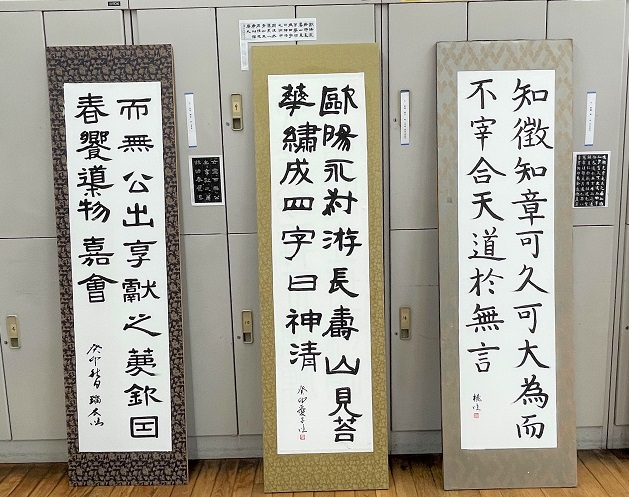 知徵知章可久可大為而
不宰合天道於無言
歐陽永叔游長壽山見苔
華繡成四字曰神清
癸卯
而無公出享獻之薦欽因
春饗導物嘉會
癸卯